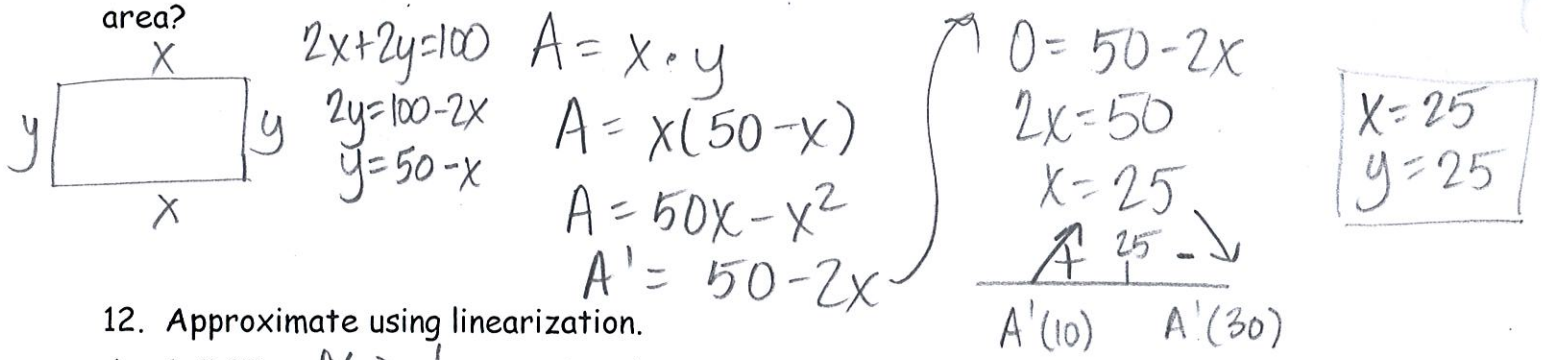 area?
x
y
y
x
2x+2y=100
2y=100-2x
y=50-x
A = x·y
A = x(50-x)
A = 50x-x²
A' = 50-2x
0 = 50-2x
2x=50
x=25
+ 25 -
A'(10) A'(30)
x=25
y=25
12. Approximate using linearization.